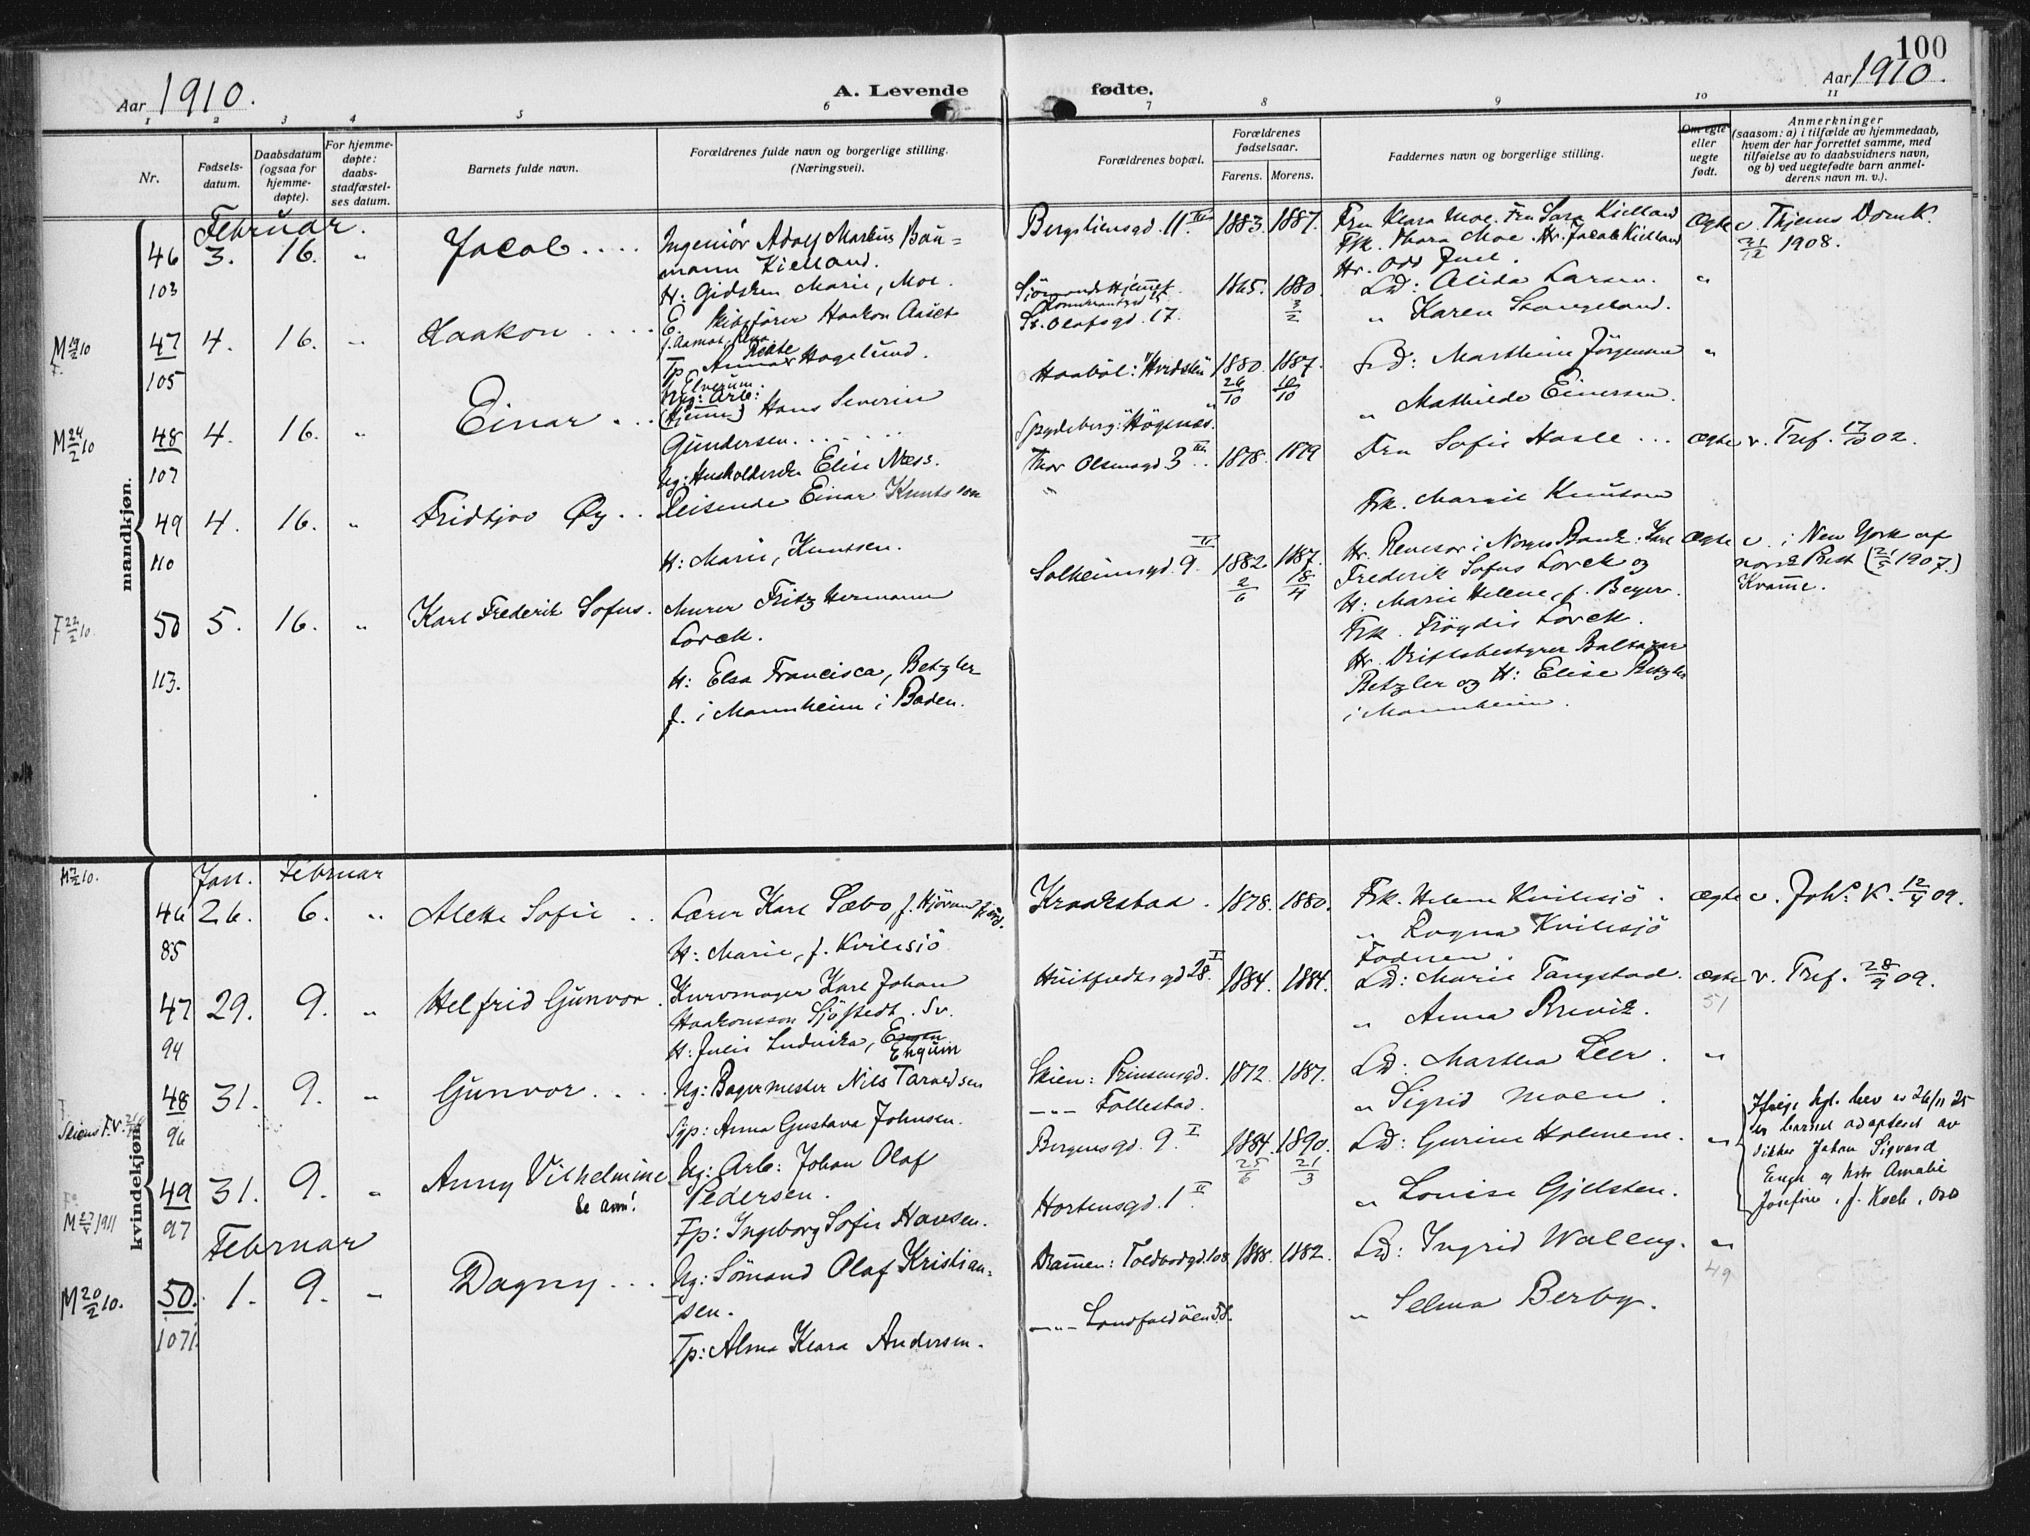 100
Aar 1910.
A. Levende
fødte.
Aar 1910.
1 2 3 4 5 6 7 8 9 10 11
Nr.
Fødsels-
datum.
Daabsdatum
(ogsaa for
hjemme-
døpte).
For hjemme-
døpte:
daabs-
stadfæstel-
ses datum.
Barnets fulde navn.
Forældrenes fulde navn og borgerlige stilling.
(Næringsvei).
Forældrenes bopæl.
Forældrenes
fødselsaar.
Farens. Morens.
Faddernes navn og borgerlige stilling.
Om egte
eller
uegte
født.
Anmerkninger
(saasom: a) i tilfælde av hjemmedaab,
hvem der har forrettet samme, med
tilføielse av to daabsvidners navn,
og b) ved uegtefødte barn anmel-
derens navn m. v.).
mandkjøn.
Februar.
46 3. 16. " Jacob . . . .
103
Ingeniør Adolf Markus Bau=
mann Kielland.
H: Gidsken Marie, Moe.
Bergsliensgd. 11. III 1883. 1887.
Fru Klara Moe. Fru Sara Kielland
Frk. Thora Moe. Hr. Jacob Kielland
Hr. Odd Juel.
Ægte
1908.
M 19/2 10
47 4. 16. " Haakon . . . .
105
Skibsfører Haakon Aaset
Hagelund.
Sjömands Hjemmet
St. Olafsgd. 17.
1865. 1880.
3/2
Ld: Alida Larsen. "
" Karen Skangeland.
M 24/2 10
48 4. 16. " Einar . . .
107
Ug: Arb:
Hans Severin
Gundersen . . . .
Ug: Husholderske Elise Næss.
Haaböl: "Hvidsten"
Spydeberg: "Högenæs".
1880. 1887.
26/10 10/10
Ld: Marthine Jörgensen "
" Mathilde Einersen.
49 4. 16. " Fridtjov Øy . .
110
Reisende Einar Knutsen
H: Marie, Knutsen.
Thor Olsensgd. 3 III . . 1878. 1879
"
Fru Sofie Hasle . . .
Frk. Marie Knutsen
ægte v. Tref. 17/10 02.
F 22/2 10.
50 5. 16. " Karl Frederik Sofus.
113.
Murer Fritz Hermann
Lorck.
H: Elsa Francisca, Betzler
f. i Mannheim i Baden.
Solheimsgd. 9. II 1882. 1887.
2/6 18/4
Hr. Revisor i Norges Bank: Karl
Frederik Sofus Lorck og
H: Marie Helene, f. Beyer.
Frk. Fröydis Lorck.
Hr. Driftsbestyrer Baltazar
Betzler og H: Elise Betzler
i Mannheim.
Ægte v. i New York af
norsk Prest (21/5 1907.)
Kvamme.
kvindekjøn.
Jan. Februar
M 7/2 10.
46 26. 6. " Alette Sofie . .
85
Lærer Karl Sæbo, f. Hjörundfjord.
H: Marie, f. Kvilesjö
Kraakstad. 1878. 1880.
Frk. Helene Kvilesjö .
" Ragna Kvilesjö
Fodnen.
ægte v. Joh: K. 12/4 09.
47 29. 9. " Helfrid Gunvor .
94
Kurvmager Karl Johan
Haakonsson Sjöstedt. Sv.
H: Julie Ludvika, Engen
Enquin
Huitfeldtsgd 28. I 1884. 1884.
Ld: Marie Tangstad.
" Anna Brevik.
ægte v. Tref. 28/9 09.
51
Skiens F.V.
48 31. 9. " Gunvor . . . .
96
Ug: Bagermester Nils Tarvedsen
Syp: Anna Gustava Johnsen.
Skien: Prinsensgd. 1872. 1887.
--- Follestad.
Ld: Martha Leer. "
" Sigrid Moen.
M 27/5 1911
49 31. 9. " Anny Vilhelmine
97 Se anm!
Ug: Arb: Johan Olaf
Pedersen.
Fp: Ingeborg Sofie Hansen.
Bergensgd. 9. I 1884. 1890.
25/6 21/3
Hortensgd. 1 II
Ld: Gurine Holmene. "
" Louise Gjelsten.
Ifölge kgl. bev. av 26/11 25
er barnet adopteret av
Johan Sigvard
Engh og hstr Amalie
Josefine, f. Koch. Oslo
Februar
M 20/2 10.
50. 1. 9. " Dagny . . .
1071.
Ug: Sömand Olaf Kristian=
sen.
Tp: Alma Klara Andersen.
Drammen: Toldbodgd. 108. 1888. 1882.
--- Landfaldöen 58.
Ld: Ingrid Walleng. "
49
" Selma Berby.